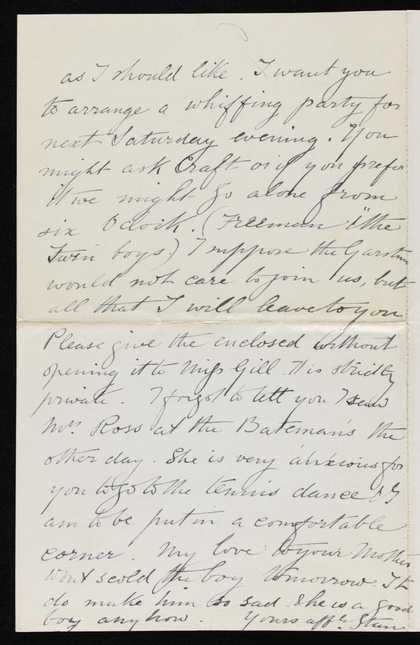 as I should like. I want you
to arrange a whiffing party for
next Saturday evening. You
might ask Craft or if you prefer
it we might go alone from
six O'clock. (Freeman & "the
Twin boys) I suppose the Garstin
would not care to join us, but
all that I will leave to you
Please give the enclosed without
opening it to Miss Gill. It is strictly
private. I forgot to tell you I saw
Mrs Ross at the Bateman's the
other day. She is very anxious for
you to go to the tennis dance & I
am to be put in a comfortable
corner. My love to your Mother
Don't scold the boy tomorrow. It
do make him so sad. She is a good
boy anyhow. Yours affly Stan